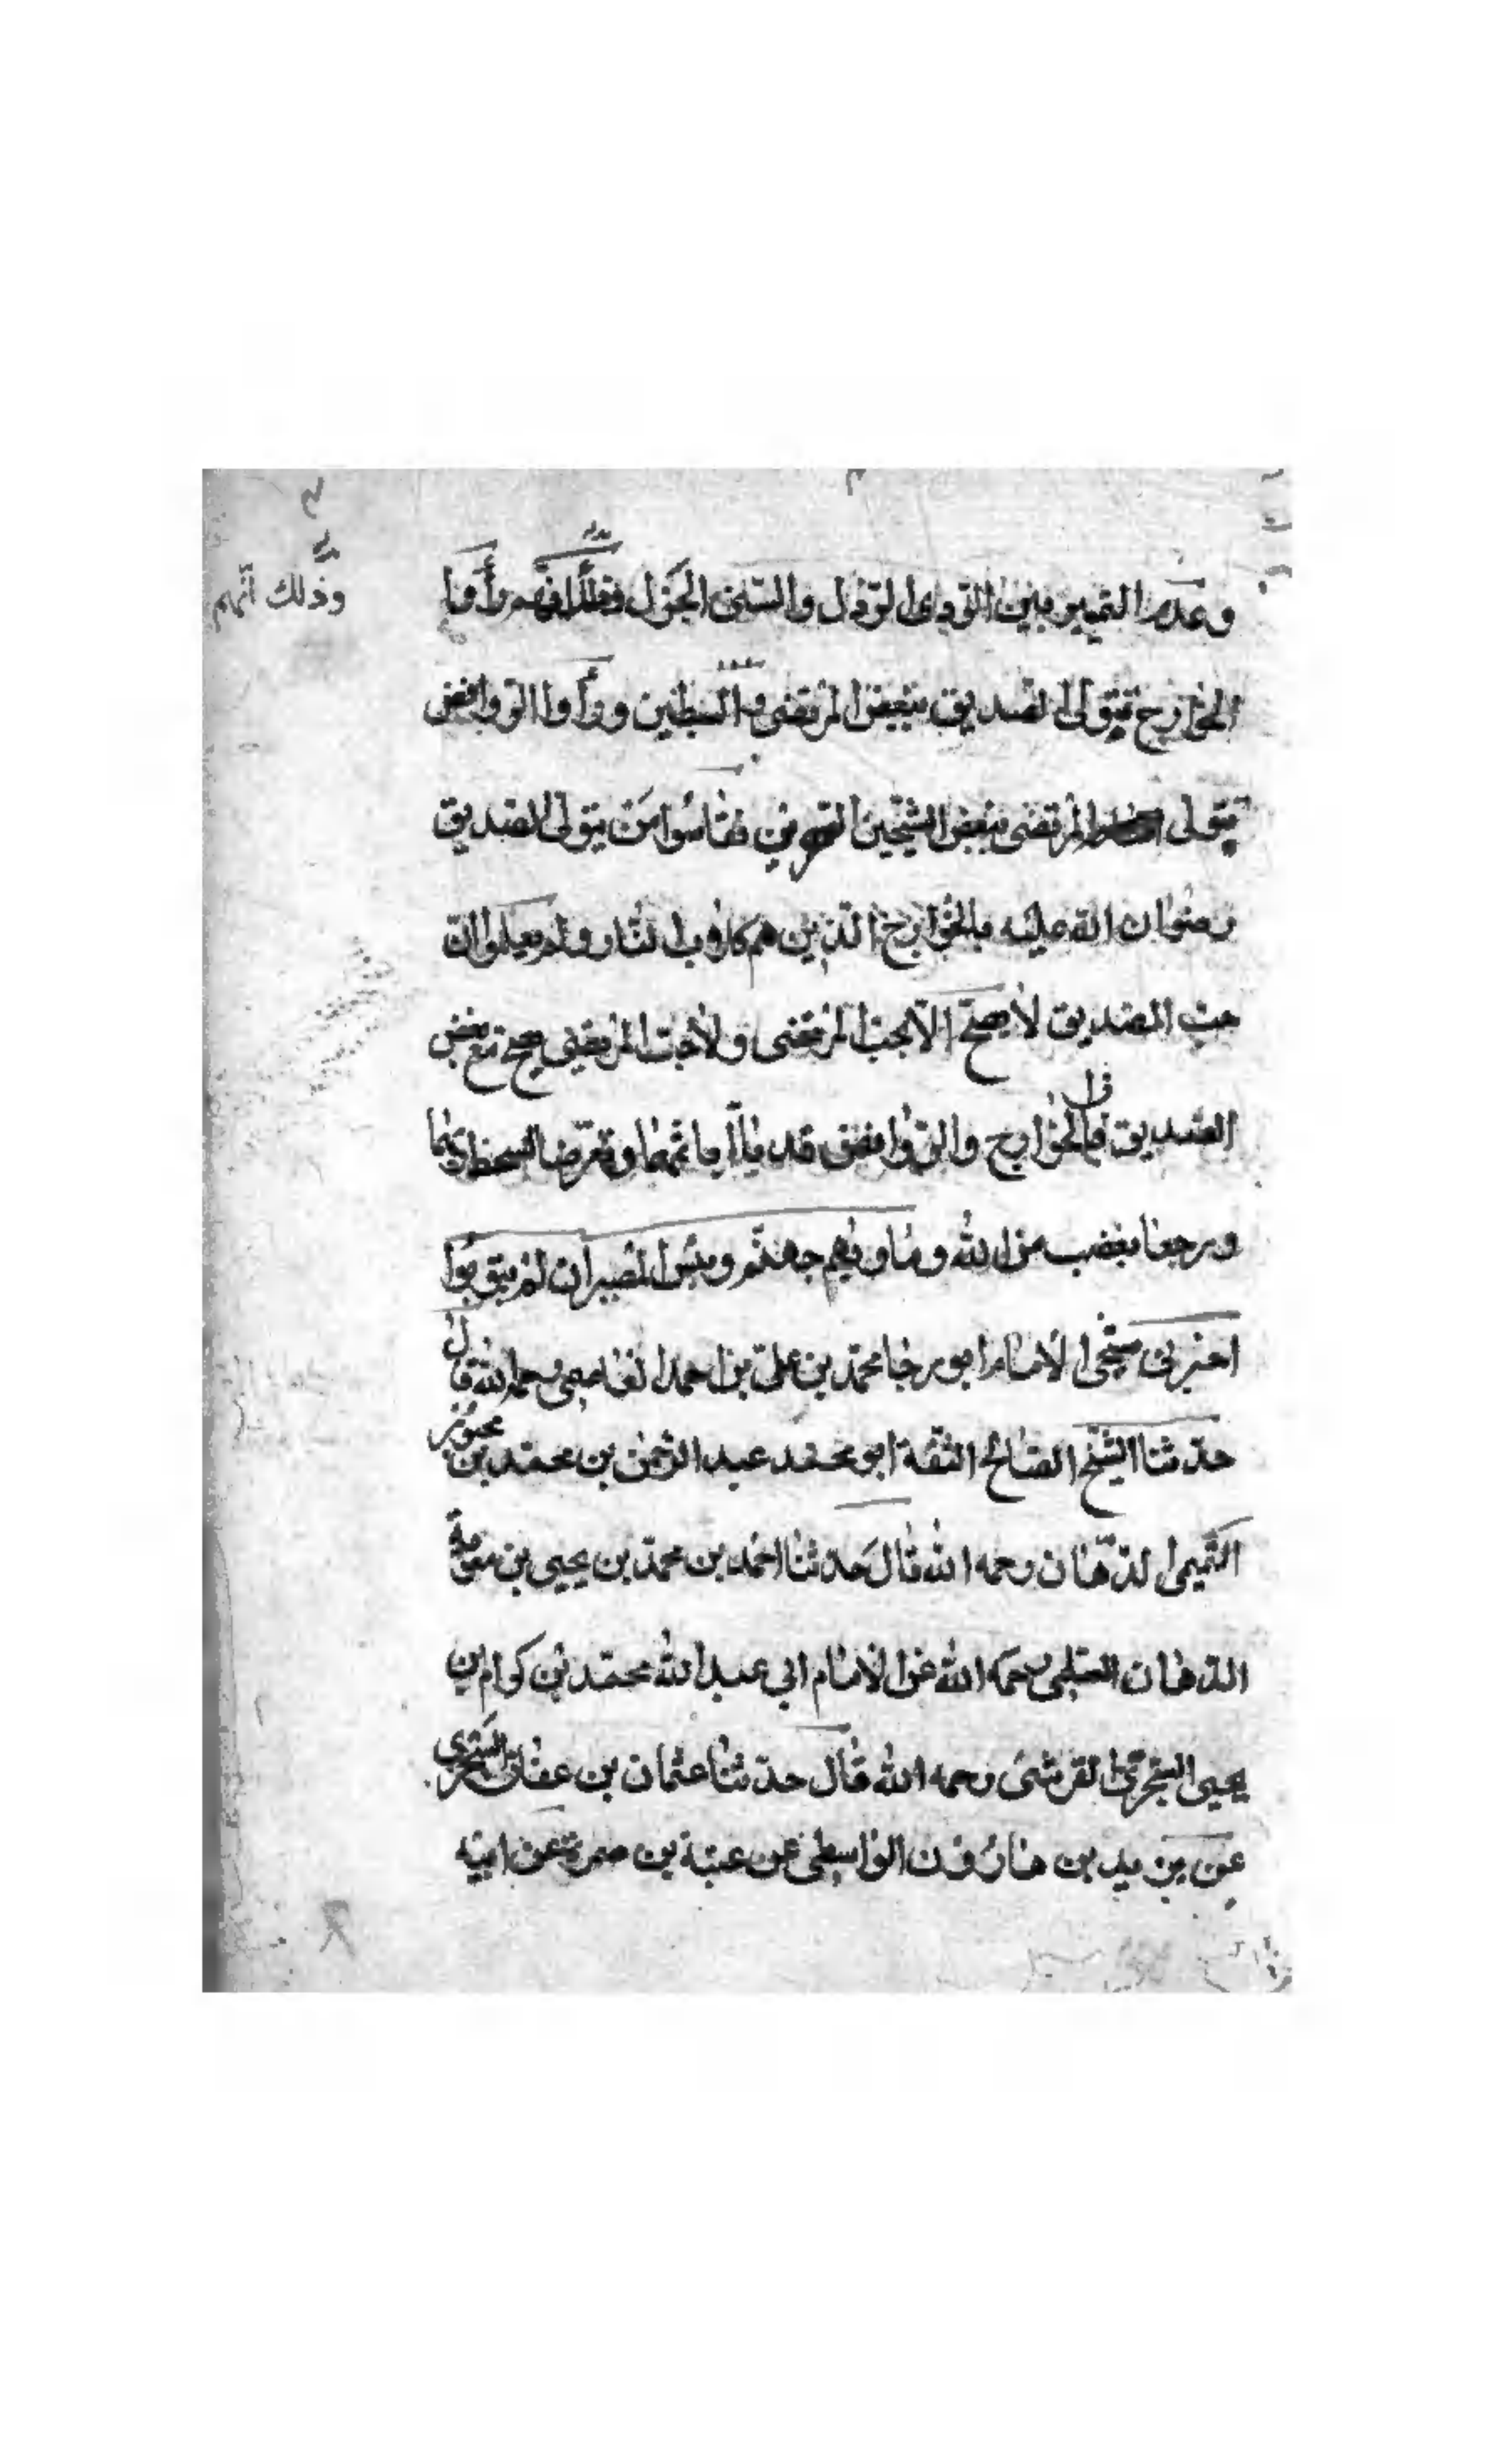 وذلك انّهم
وعدم التمييز بين القوي الرذل والسني الجزل فلأنهم رأوا
الخوارج تتولى الصديق تبغض المرتضى والسبطين ورأوا الروافض
تتولى المرتضى تبغض الشيخين فقاسوا من يتولى الصديق
رضوان الله عليه بالخوارج الذين هم كلاب النار ولم يعلموا ان
حب الصديق لا يصحّ الا بحب المرتضى ولا حب المرتضى يصح مع بغض
الصديق فالخوارج والروافض قد باآ باثمهما وتعرّضا لسخط ربهما
ورجعا بغضب من الله وماويهم جهنّم وبئس المصير ان لم يتوبوا
اخبرني شيخي الامام ابو رجا محمّد بن عليّ بن احمد العاصمي رحمه الله قال
حدثنا الشيخ الصالح الثقة ابو محمد عبد الرحمن بن محمد بن محبور
التميمي الدهّان رحمه الله قال حدثنا احمد بن محمّد بن يحيى بن معوية
الدهان رحمه الله عن الامام ابي عبد الله محمّد بن كرام بن
يحيى السجزي القرشي رحمه الله قال حدثنا عثمان بن عفان السجزي
عن يزيد بن هارون الواسطي عن عتبة بن ضمرة عن ابيه